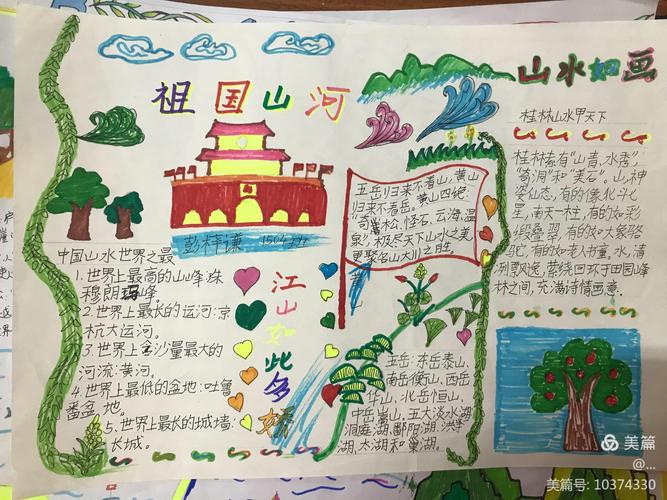 祖国山河
彭梓谦 1504班
中国山水世界之最
1.世界上最高的山峰:珠
穆朗玛峰.
2.世界上最长的运河:京
杭大运河.
3.世界上含沙量最大的
河流:黄河.
4.世界上最低的盆地:吐鲁
番盆地.
5.世界上最长的城墙:
长城.
江山如此多娇
五岳归来不看山,黄山
归来不看岳。黄山四绝:
"奇松、怪石、云海、温
泉",极尽天下山水之美,
更聚名山大川之胜.
五岳:东岳泰山、
南岳衡山、西岳
华山、北岳恒山、
中岳嵩山,五大淡水湖
洞庭湖、鄱阳湖、洪泽
湖、太湖和巢湖。
山水如画
桂林山水甲天下
桂林素有"山青、水秀",
"奇洞"和"美石"。山,神
姿仙态,有的像北斗七
星,南天一柱,有的如彩
缎叠翠,有的如大象骆
驼,有的如老人书童。水,清
冽漂逸,萦绕回环于田园峰
林之间,充满诗情画意.
美篇
@...
美篇号: 10374330